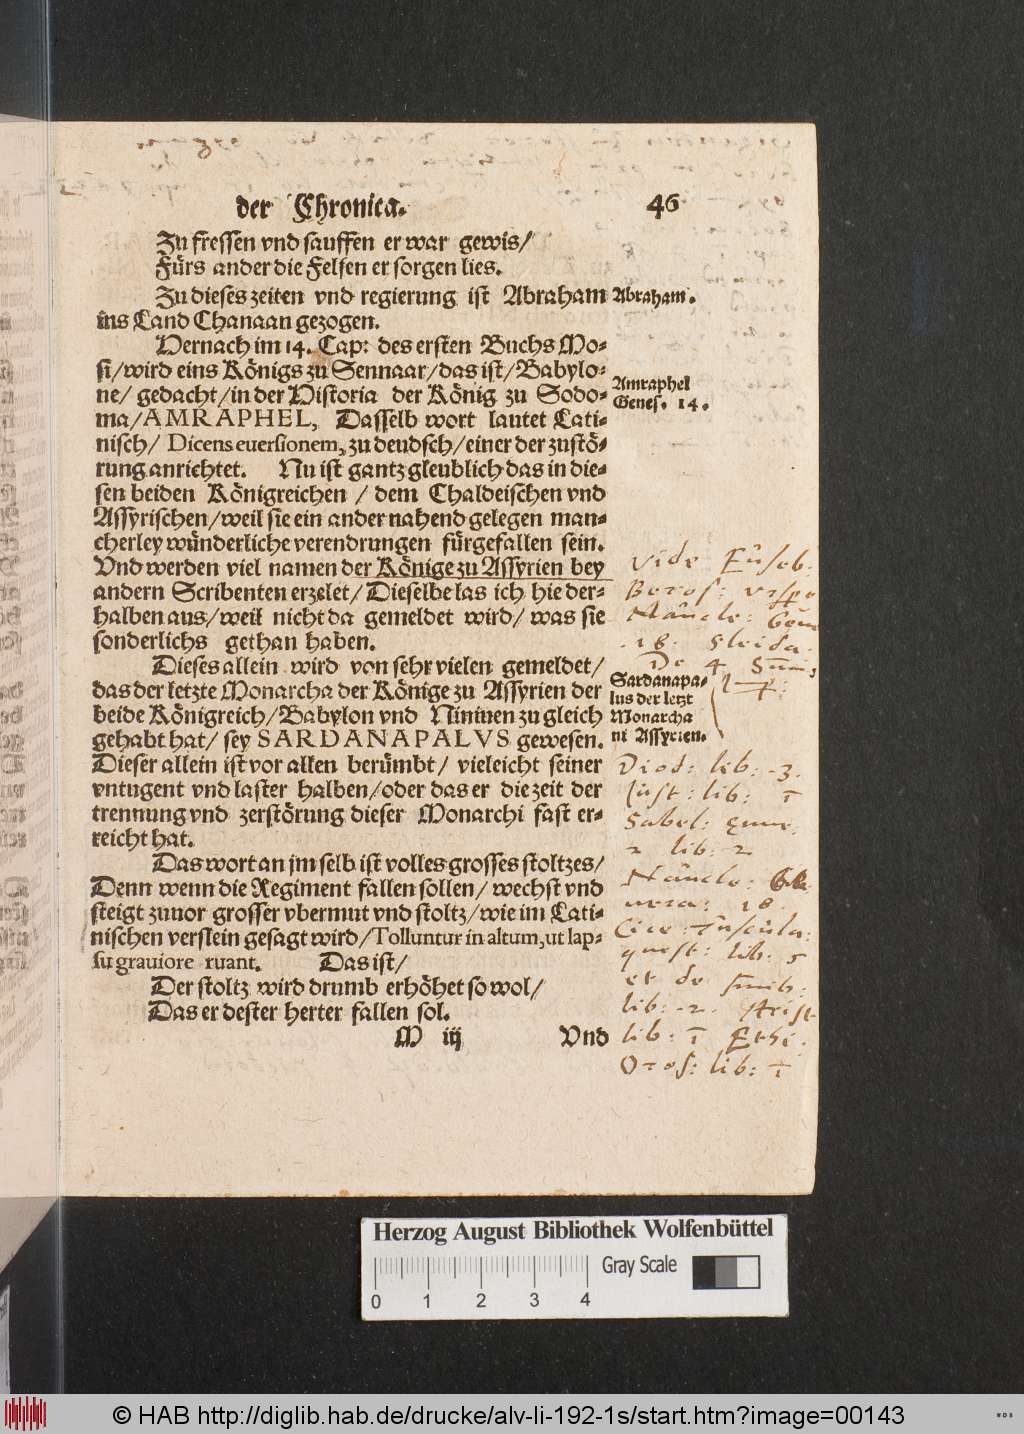 der Chronica. 46
Zu fressen vnd sauffen er war gewis/
Fürs ander die Felsen er sorgen lies.
Zu dieses zeiten vnd regierung ist Abraham
ins Land Chanaan gezogen.
Abraham.
Hernach im 14. Cap: des ersten Buchs Mo-
si/wird eins Königs zu Sennaar/das ist/Babylo-
ne/ gedacht/in der Historia der König zu Sodo-
ma/AMRAPHEL, Dasselb wort lautet Lati-
nisch/ Dicens euersionem, zu deudsch/einer der zustö-
rung anrichtet. Nu ist gantz gleublich das in die-
sen beiden Königreichen / dem Chaldeischen vnd
Assyrischen/weil sie ein ander nahend gelegen man-
cherley wünderliche verendrungen fürgefallen sein.
Vnd werden viel namen der Könige zu Assyrien bey
andern Scribenten erzelet/Dieselbe las ich hie der-
halben aus/weil nicht da gemeldet wird/was sie
sonderlichs gethan haben.
Amraphel
Genes. 14.
Dieses allein wird von sehr vielen gemeldet/
das der letzte Monarcha der Könige zu Assyrien der
beide Königreich/Babylon vnd Niniuen zu gleich
gehabt hat/ sey SARDANAPALVS gewesen.
Dieser allein ist vor allen berümbt/ vieleicht seiner
vntugent vnd laster halben/oder das er die zeit der
trennung vnd zerstörung dieser Monarchi fast er-
reicht hat.
Das wort an jm selb ist volles grosses stoltzes/
Denn wenn die Regiment fallen sollen/wechst vnd
steigt zuuor grosser vbermut vnd stoltz/wie im Lati-
nischen verslein gesagt wird/Tolluntur in altum, ut lap-
su grauiore ruant. Das ist/
Der stoltz wird drumb erhöhet so wol/
Das er dester herter fallen sol.
M iij Vnd
vide Euseb:
Beros:
Naucle:
18. Sleida.
De 4 Sum̄is
Sardanapa-
lus der letzt
Monarcha
in Assyrien.
Diod: lib: 3.
Iust: lib: 1
Sabel:
2 lib: 2
Naucle:
18.
Cice: Tuscula:
quest: lib: 5
et de finib:
lib: 2. Arist
lib: 1 Ethi.
Oros: lib: 1
Herzog August Bibliothek Wolfenbüttel
Gray Scale
0 1 2 3 4
© HAB http://diglib.hab.de/drucke/alv-li-192-1s/start.htm?image=00143